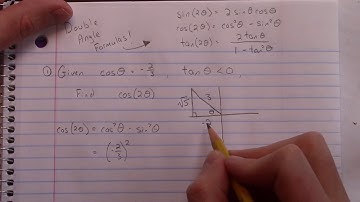 Double
Angle
Formulas!
sin(2θ) = 2 sinθ cosθ
cos(2θ) = cos²θ - sin²θ
tan(2θ) = 2 tanθ / 1 - tan²θ
① Given cosθ = -2/3, tanθ < 0,
Find cos(2θ)
√5 3
θ
cos(2θ) = cos²θ - sin²θ
= (-2/3)²